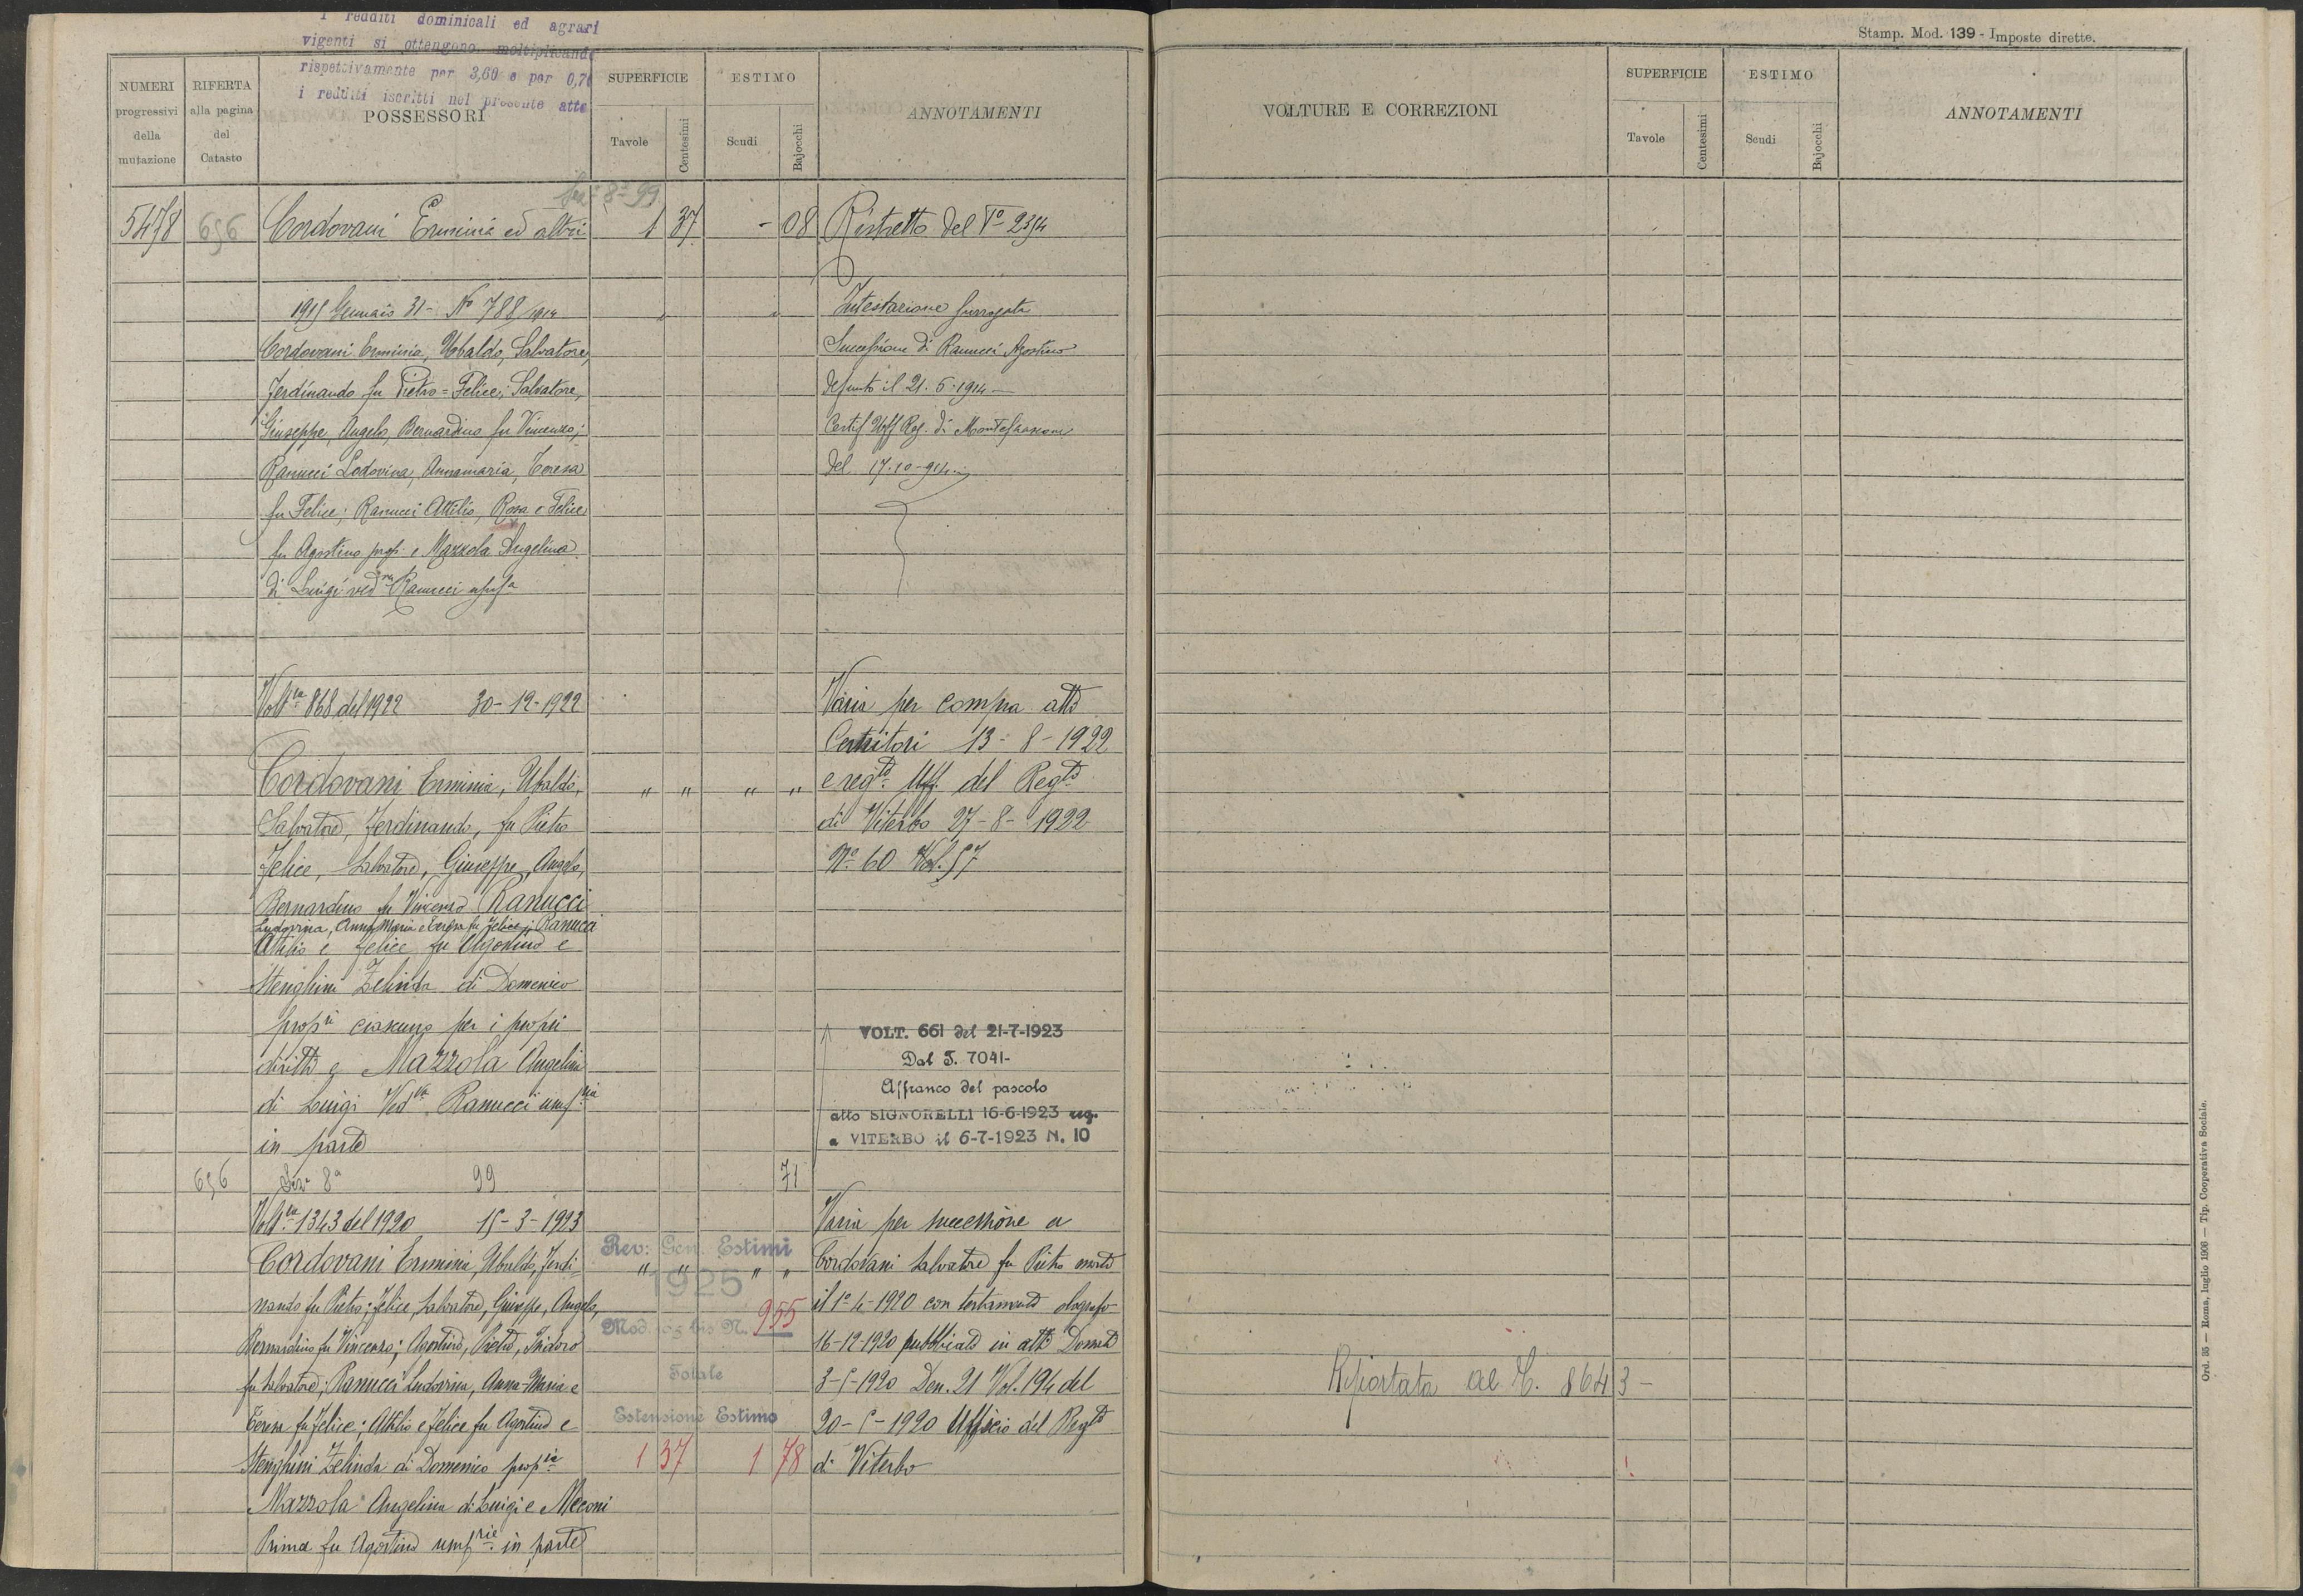 I redditi dominicali ed agrari
vigenti si ottengono moltiplicando
rispettivamente per 3,60 e per 0,70
i redditi iscritti nel presente atto
NUMERI progressivi della mutazione
RIFERTA alla pagina del Catasto
POSSESSORI
SUPERFICIE
Tavole
Centesimi
ESTIMO
Scudi
Bajocchi
ANNOTAMENTI
Sez 8ª 99
5478 656 Cordovani Erminia ed altri 1 37 - 08 Ristretto del To 2394
1915 Gennaio 31 - No 788/1914 Intestazione surrogata
Cordovani Erminia, Ubaldo, Salvatore, Successione di Ranucci Agostino
Ferdinando fu Pietro = Felice, Salvatore, defunto il 21.5.1914 -
Giuseppe, Angelo, Bernardino fu Vincenzo; Certif Uff Reg. di Montefiascone
Ranucci Lodovina, Annamaria, Teresa del 17.10-914
fu Felice; Ranucci Attilio, Rosa e Felice
fu Agostino propi e Mazzola Angelina
di Luigi vedva Ranucci usufa
Voltra 868 del 1922 30-12-1922 Varia per compra atto
13-8-1922
Cordovani Erminia, Ubaldo, " " " " e regto Uff. del Regto
Salvatore, Ferdinando, fu Pietro di Viterbo 27-8-1922
Felice, Salvatore, Giuseppe, Angelo, No 60 Vol. 57
Bernardino fu Vincenzo Ranucci
Ludovina, Anna Maria e Teresa fu Felice; Ranucci
Attilio e Felice fu Agostino e
Menghini Zelinda di Domenico
propri ciascuno per i propri
diritti e Mazzola Angelina
di Luigi Vedva Ranucci usufria
in parte
VOLT. 661 del 21-7-1923
Dal T. 7041-
Affranco del pascolo
atto SIGNORELLI 16-6-1923 reg.
a VITERBO il 6-7-1923 N. 10
656 Sez 8ª 99 71
Voltra 1343 del 1920 15-3-1923 Varia per successione a
Cordovani Erminia, Ubaldo, Ferdi- " " " " Cordovani Salvatore fu Pietro morto
nando fu Pietro; Felice, Salvatore, Giuseppe, Angelo, il 1o-4-1920 con testamento olografo
Bernardino fu Vincenzo; Agostino, Pietro, Isidoro 16-12-1920 pubblicato in atto
fu Salvatore; Ranucci Ludovina, Anna-Maria e 3-5-1920 Den. 21 Vol. 194 del
Teresa fu Felice; Attilio e Felice fu Agostino e 20-5-1920 Ufficio del Regto
Menghini Zelinda di Domenico propri 1 37 1 78 di Viterbo
Mazzola Angelina di Luigi e Meconi
Prima fu Agostino usufrie in parte
Rev: Gen. Estimi
1925
Mod. 105 bis N. 955
Totale
Estensione Estimo
Stamp. Mod. 139 - Imposte dirette.
VOLTURE E CORREZIONI
SUPERFICIE
Tavole
Centesimi
ESTIMO
Scudi
Bajocchi
ANNOTAMENTI
Riportata al T. 8643 -
Ord. 35 — Roma, luglio 1906 — Tip. Cooperativa Sociale.